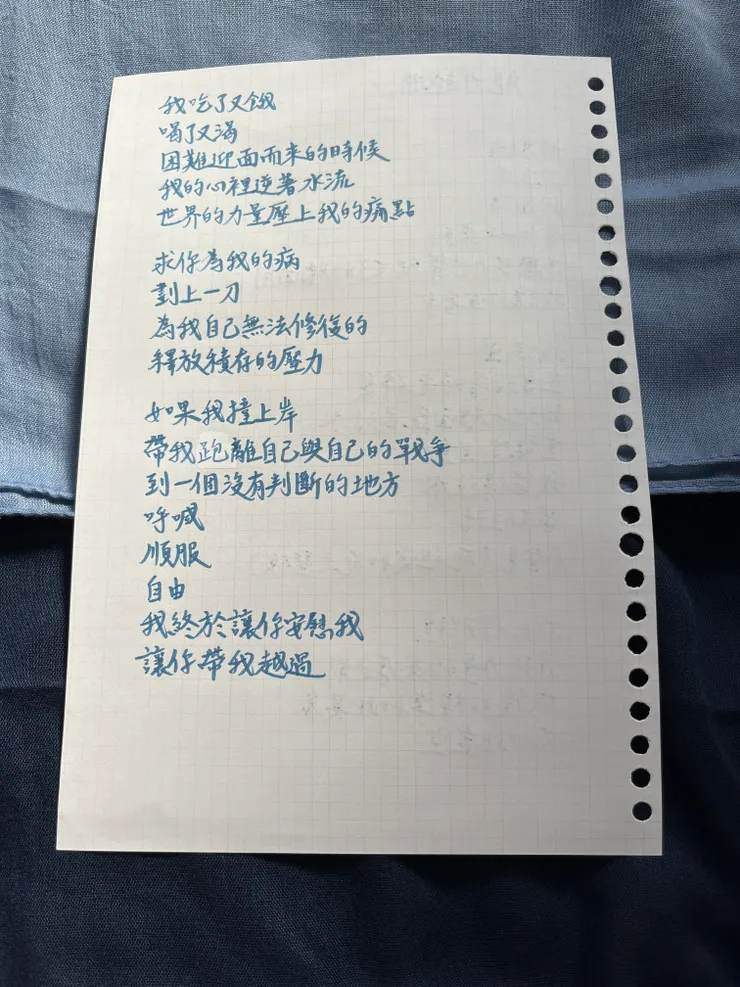 我吃了又餓
喝了又渴
困難迎面而來的時候
我的心裡逆著水流
世界的力量壓上我的痛點
求你為我的病
劃上一刀
為我自己無法修復的
釋放積存的壓力
如果我撞上岸
帶我跑離自己與自己的戰爭
到一個沒有判斷的地方
呼喊
順服
自由
我終於讓你安慰我
讓你帶我越過